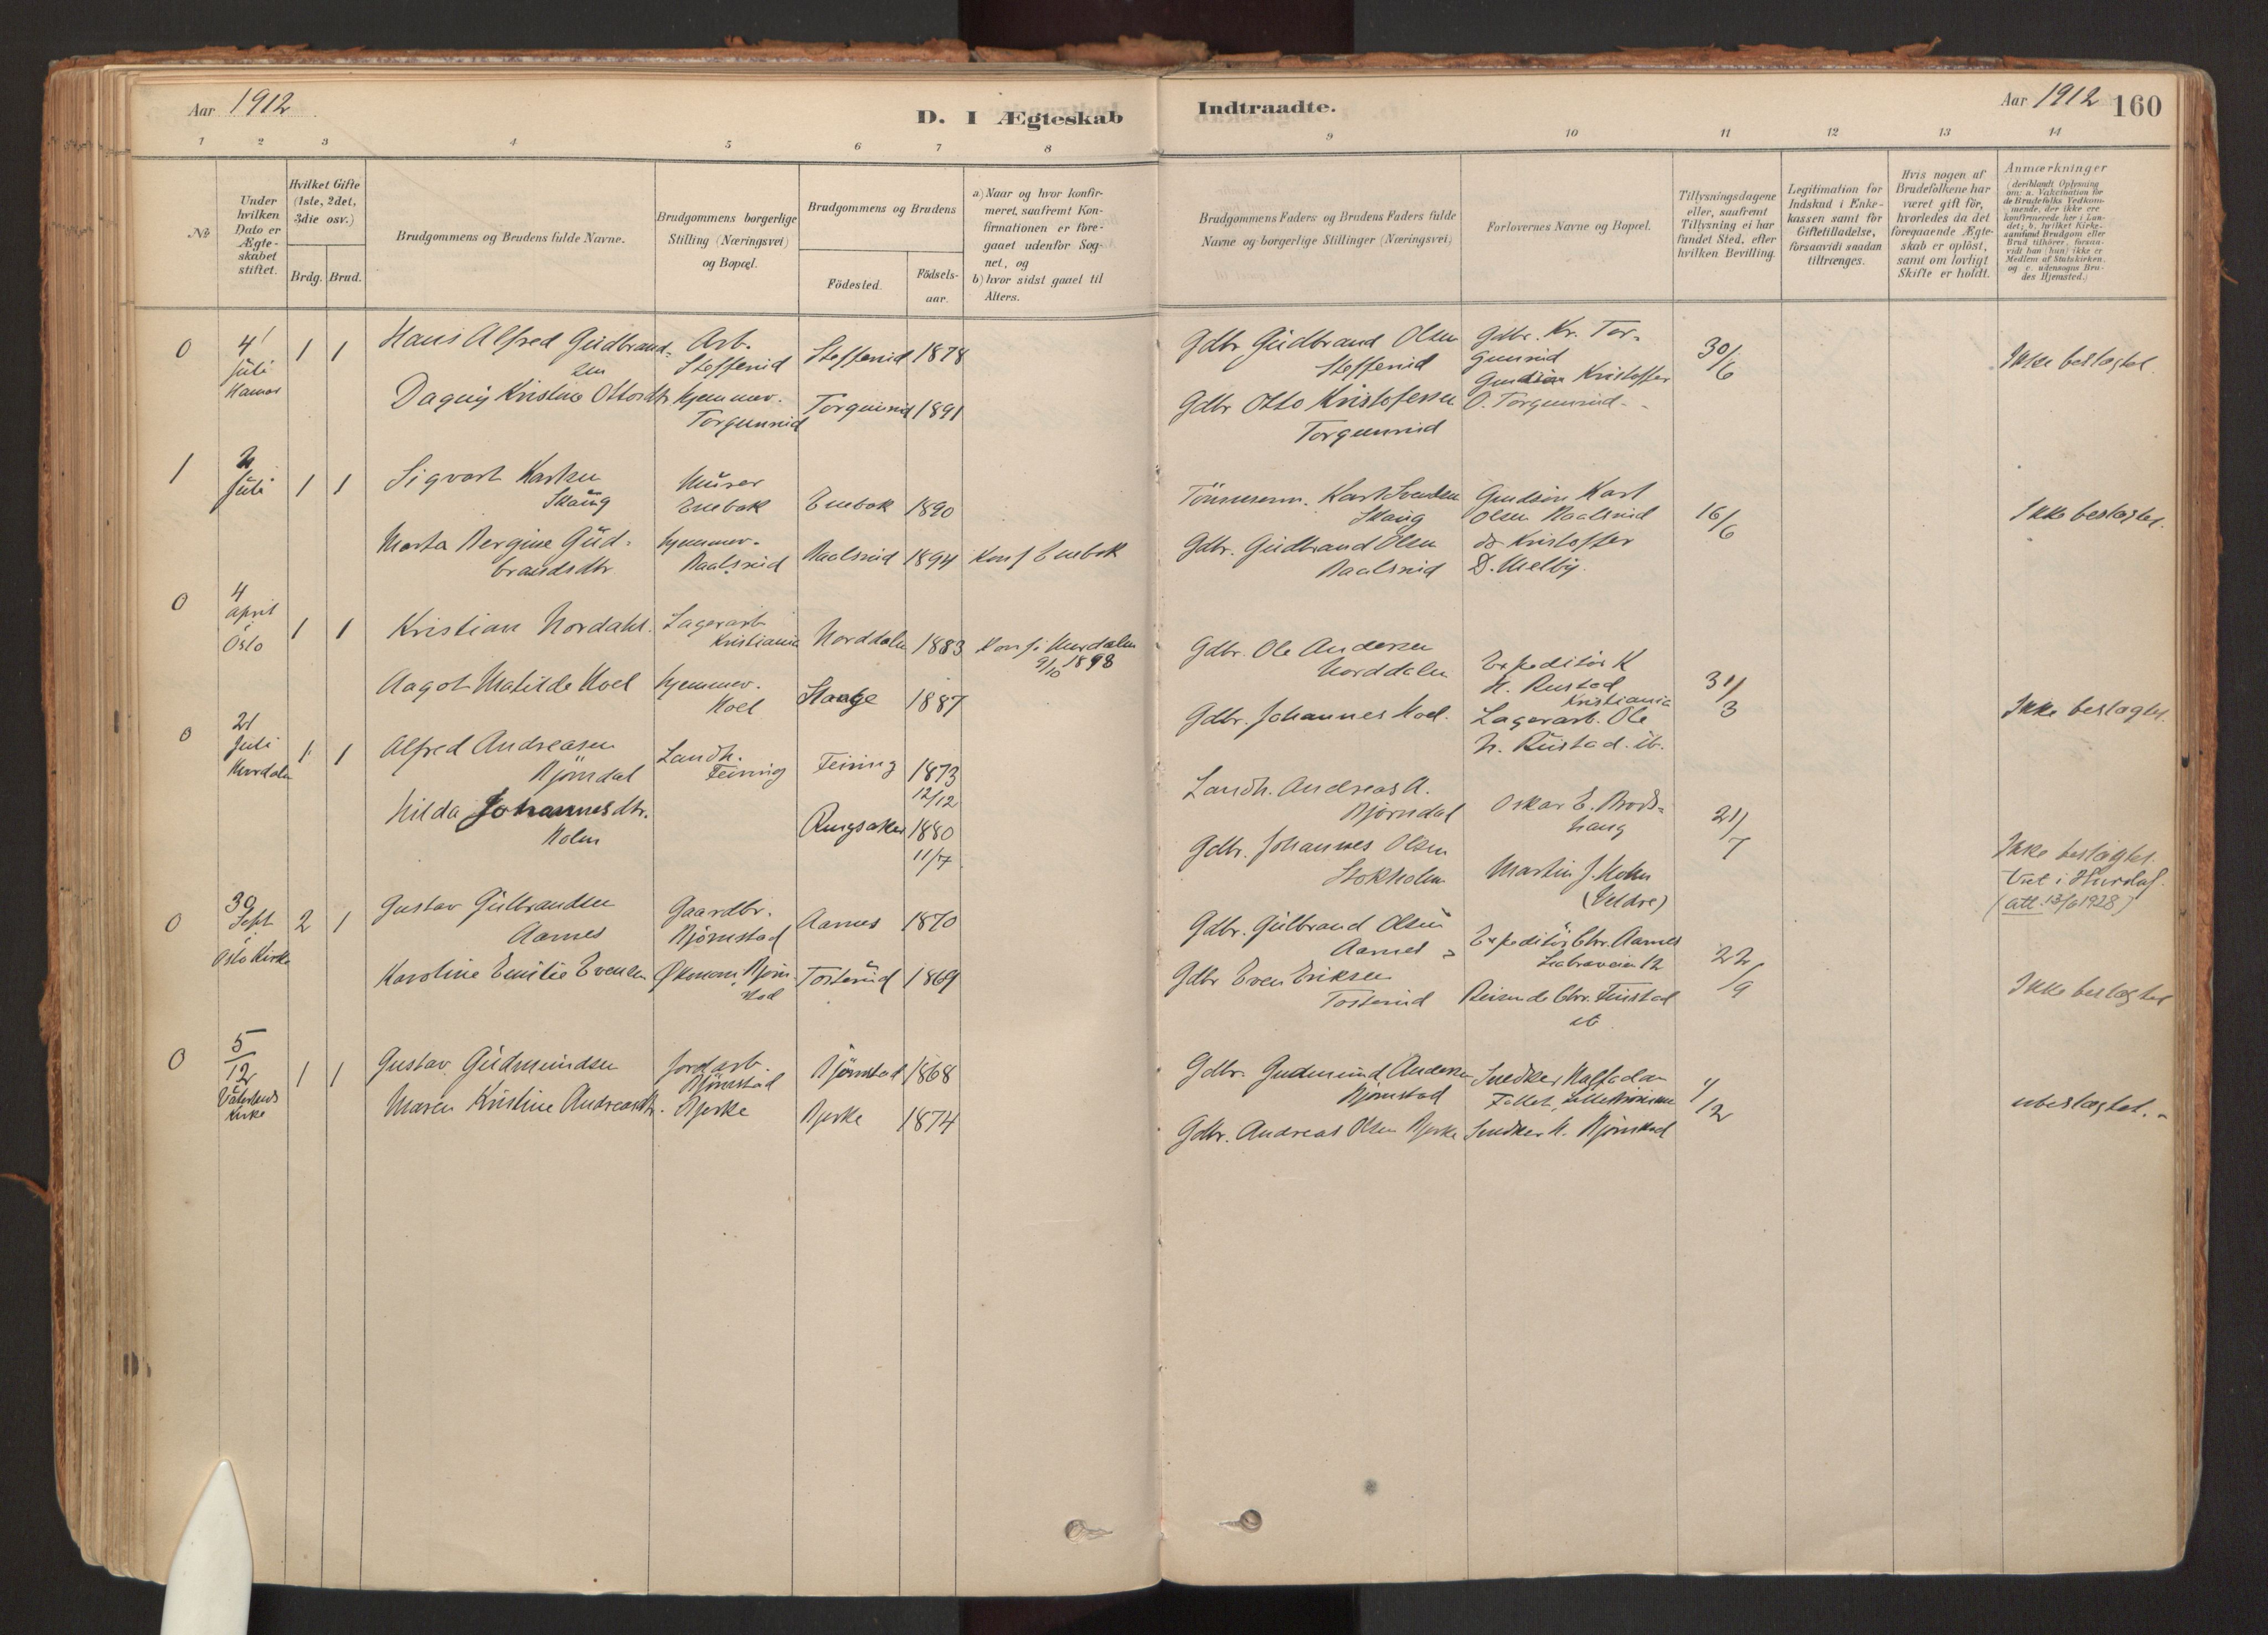 Aar 1912
D. I Ægteskab
Indtraadte.
Aar 1912 160
1 2 3 4 5 6 7 8 9 10 11 12 13 14
No
Under hvilken Dato er Ægteskabet stiftet.
Hvilket Gifte (1ste, 2det, 3die osv.)
Brdg. Brud.
Brudgommens og Brudens fulde Navne.
Brudgommens borgerlige Stilling (Næringsvei) og Bopæl.
Brudgommens og Brudens
Födested.
Födsels-aar.
a) Naar og hvor konfirmeret, saafremt Konfirmationen er foregaaet udenfor Sognet, og
b) hvor sidst gaaet til Alters.
Brudgommens Faders og Brudens Faders fulde Navne og borgerlige Stillinger (Næringsvei)
Forlovernes Navne og Bopæl.
Tillysningsdagene eller, saafremt Tillysning ei har fundet Sted, efter hvilken Bevilling.
Legitimation for Indskud i Enkekassen samt for Giftetilladelse, forsaavidt saadan tiltrænges.
Hvis nogen af Brudefolkene har været gift för, hvorledes da det foregaaende Ægteskab er oplöst, samt om lovligt Skifte er holdt.
Anmærkninger
(deriblandt Oplysning om: a. Vakcination for de Brudefolks Vedkommende, der ikke ere konfirmerede her i Landet; b. hvilket Kirkesamfund Brudgom eller Brud tilhörer, forsaavidt han (hun) ikke er Medlem af Statskirken, og c. udensogns Brudes Hjemsted.)
0
4
Juli
Hamar
1 1
Hans Alfred Gudbrand-
sen
Arb.
Steffenrud
Steffenrud 1878
Gdbr Gudbrand Olsen
Steffenrud
Gdbr. Kr. Tor-
gunrud
30/6
Ikke beslagtet
Dagny Kristine Ottosdtr
hjemmev.
Torgunrud
Torgunrud 1891
Gdbr Otto Kristofersen
Torgunrud
Kristoffer
O. Torgunrud
1
Juli
1 1
Sigvart Karlsen
Skaug
Murer
Enebak
Enebak 1890
Karl Svendsen
Skaug
Karl
Olsen Raalsrud
16/6
Ikke beslagtet.
Marta Bergine Gud-
brandsdtr
hjemmev.
Raalsrud
Raalsrud 1894 Konf Enebak
Gdbr. Gudbrand Olsen
Raalsrud
do Kristoffer
D. Melby.
0
4
April
Oslo
1 1
Kristian Nordahl.
Lagerarb
Kristiania
Norddalen 1883 Konf i Hurdalen
9/10 1898
Gdbr. Ole Andersen
Norddalen
Expeditör K
H. Rustad
Kristiania
31/3
Ikke beslagtet.
Aagot Matilde Hoel
hjemmev.
Hoel
Stange 1887
Gdbr. Johannes Hoel.
Lagerarb. Ole
H. Rustad. ib.
0
21
Juli
Hurdalen
1 1
Alfred Andreasen
Björndal
Landh.
Feiring
Feiring 1873
12/12
Landh. Andreas A.
Björndal
Oskar E. Brods-
haug
21/7
Hilda Johannesdtr.
Holm
Ringsaker 1880
11/7
Gdbr. Johannes Olsen
Stokholm
Martin J. Holm
(Veldre)
Ikke beslagtet.
Viet i Hurdal.
(att. 13/6 1928)
0
30
Sept
Oslo Kirke
2 1
Gustav Gulbrandsen
Aarnes
Gaardbr.
Björnstad
Aarnes 1870
Gdbr. Gulbrand Olsen
Aarnes
Expeditör Chr. Aarnes
22/9
Karoline Emilie Evensen
Økonom. Björn-
stad
Tosterud 1869
Gdbr Even Eriksen
Tosterud
Reisende Chr. Finstad
ib
Ikke beslagtet
0
5
12
Vaterlands
Kirke
1 1
Gustav Gudmundsen
Jordarb.
Björnstad
Björnstad 1868
Gdbr. Gudmund Andersen
Björnstad
Snedker Halfdan
Lilleströmmen
1/12
ubeslagtet.
Maren Kristine Andreasdtr.
Bjerke
Bjerke 1874
Gdbr. Andreas Olsen Bjerke
Snedker H. Björnstad